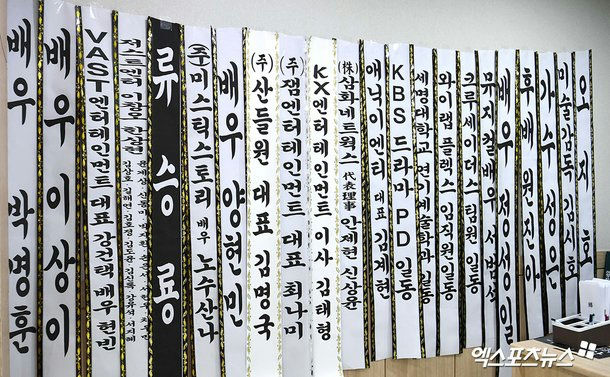 배우 박명훈
배우 이상이
VAST엔터테인먼트 대표 강건택 배우 현빈
저스트엔터
류승룡
㈜미스틱스토리 배우 노수산나
배우 양현민
(주)산들원 대표 김명국
(주)잼엔터테인먼트 대표 최나미
KX엔터테인먼트 이사 김태형
(株)삼화네트웍스 代表理事 안제현 신상윤
애닉이엔티 대표 김제현
KBS 드라마 PD 일동
세명대학교 연기예술학과 일동
와이랩 플렉스 임직원 일동
크루세이더스 팀원 일동
뮤지컬배우 서범석
배우 정성일
후배 원진아
가수 성운
미술감독 김시효
오지호
엑스포츠뉴스